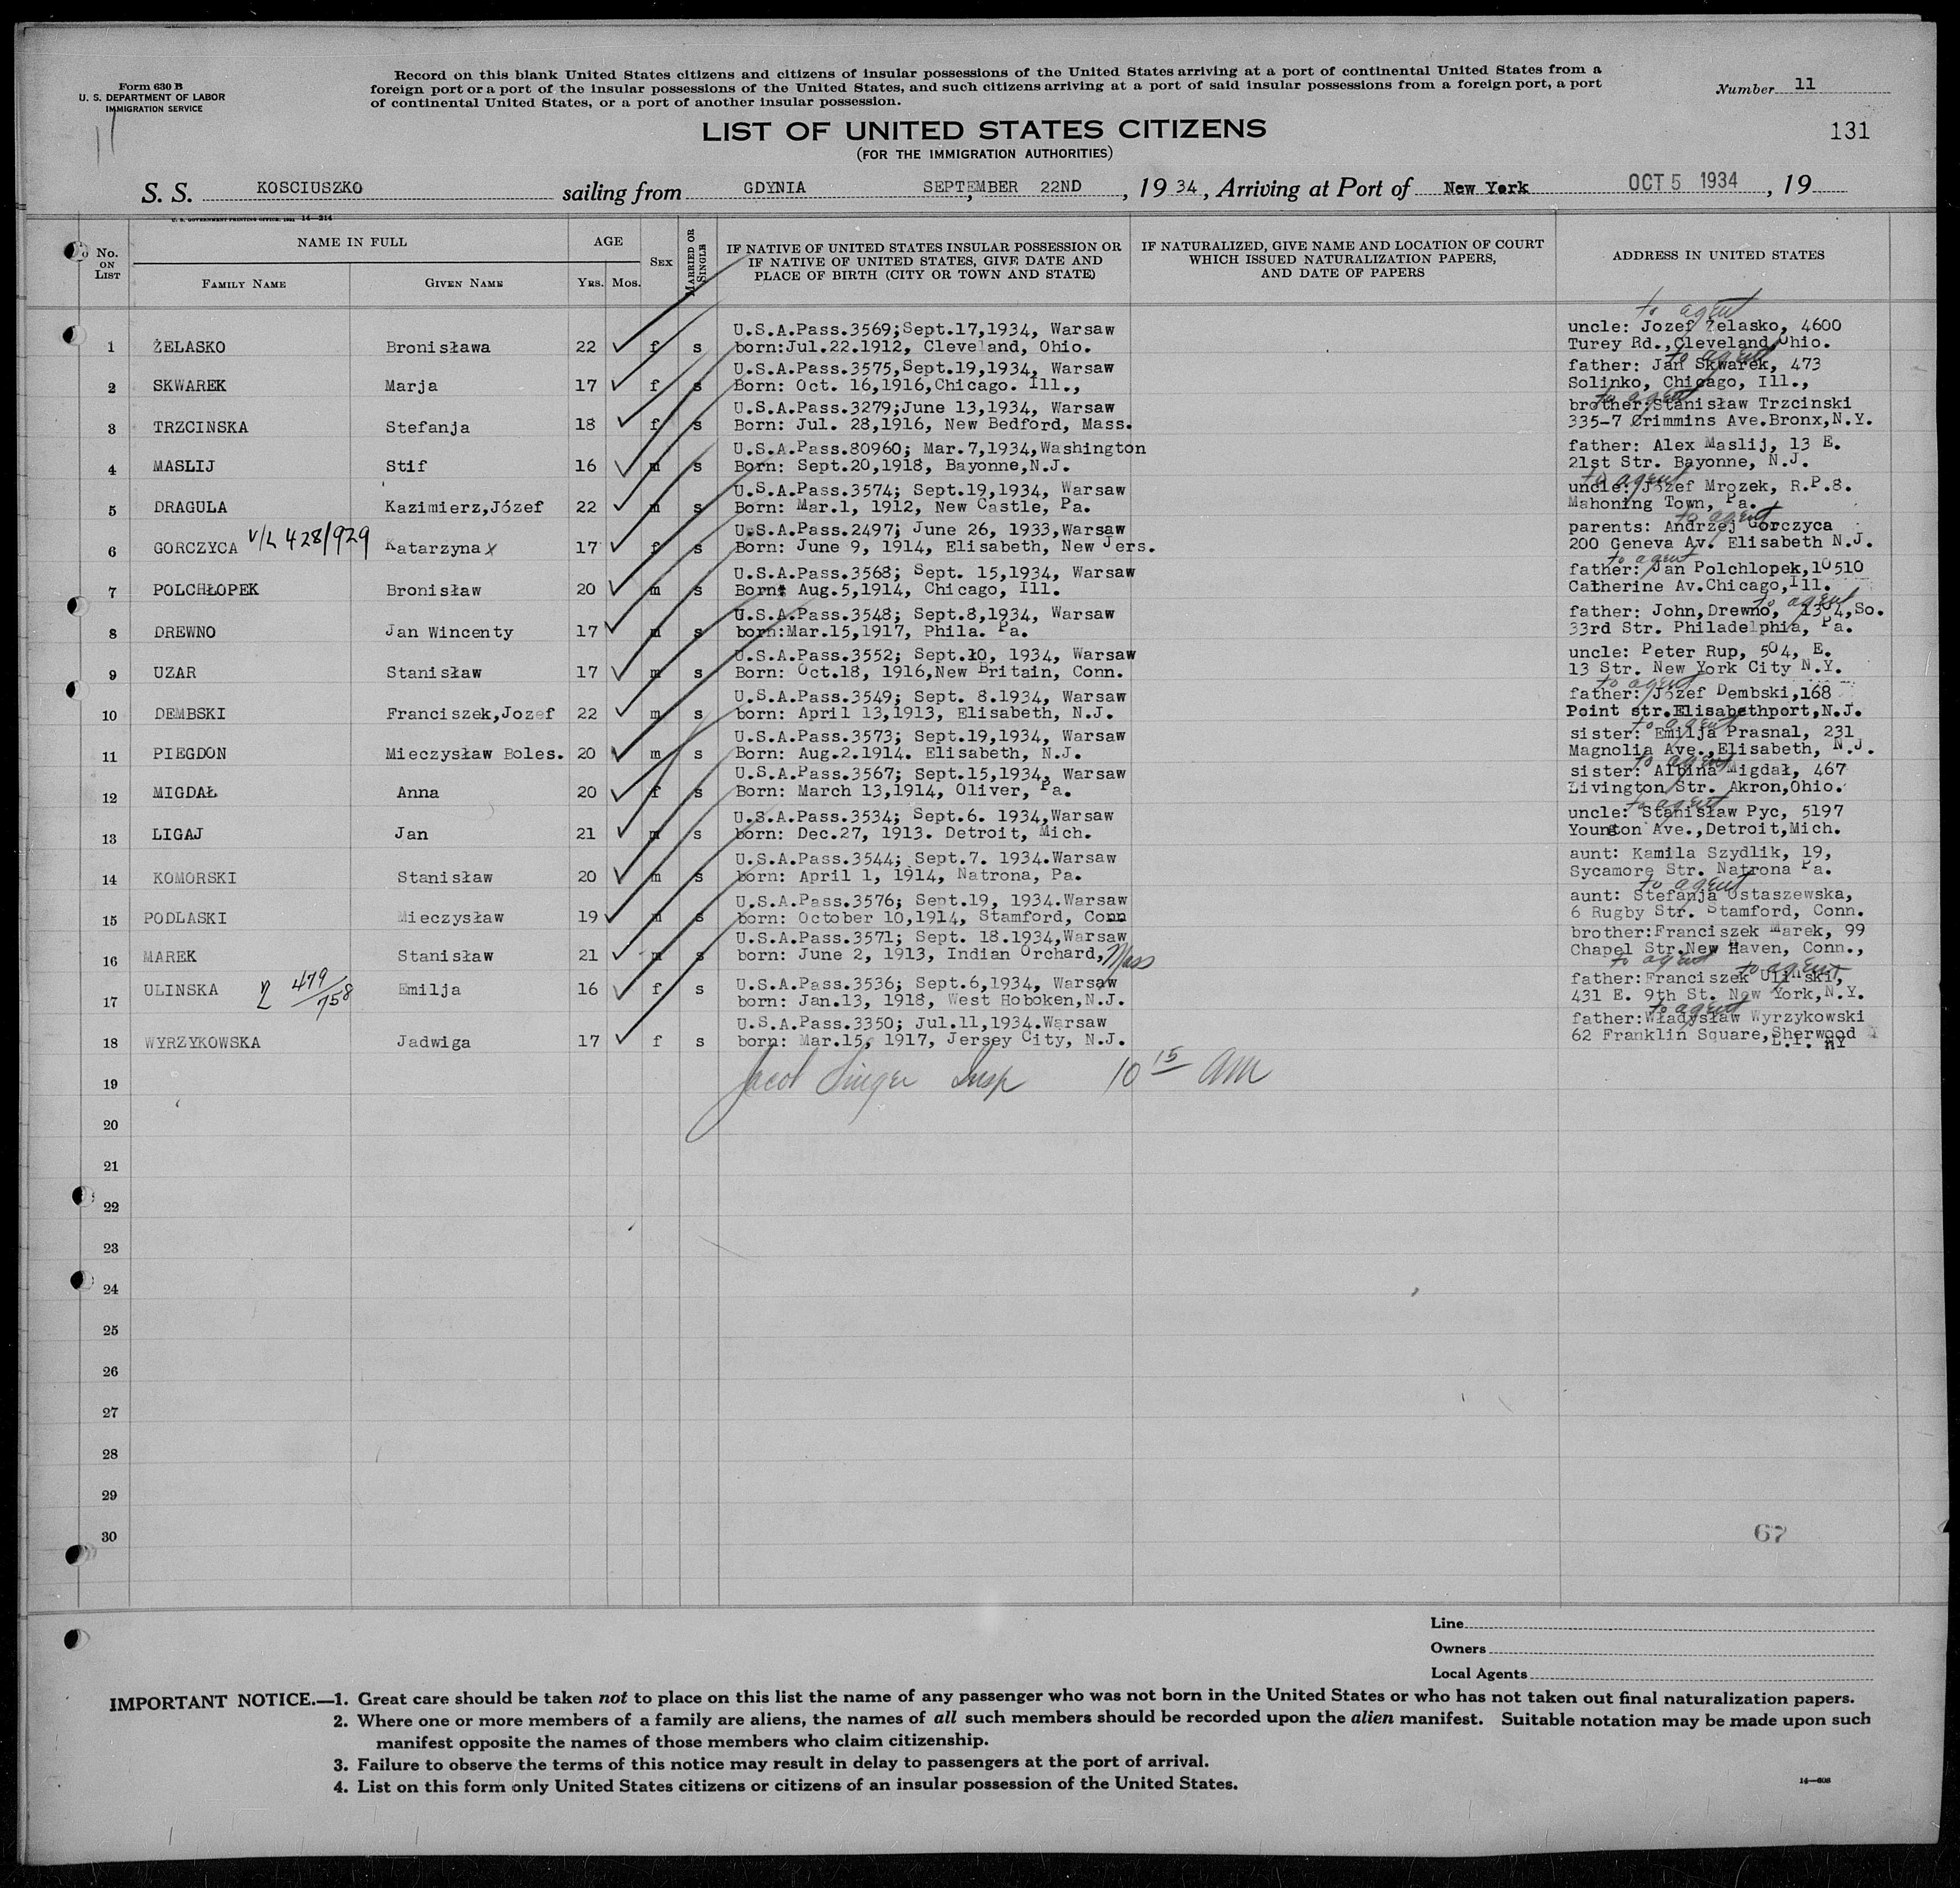 Form 630 B
U. S. DEPARTMENT OF LABOR
IMMIGRATION SERVICE
11
Record on this blank United States citizens and citizens of insular possessions of the United States arriving at a port of continental United States from a
foreign port or a port of the insular possessions of the United States, and such citizens arriving at a port of said insular possessions from a foreign port, a port
of continental United States, or a port of another insular possession.
Number 11
LIST OF UNITED STATES CITIZENS
131
(FOR THE IMMIGRATION AUTHORITIES)
S. S. KOSCIUSZKO sailing from GDYNIA SEPTEMBER 22ND, 1934, Arriving at Port of New York OCT 5 1934, 19
U. S. GOVERNMENT PRINTING OFFICE: 1931 14—214
No. ON LIST
NAME IN FULL
FAMILY NAME GIVEN NAME
AGE
YRS. MOS.
SEX
MARRIED OR SINGLE
IF NATIVE OF UNITED STATES INSULAR POSSESSION OR
IF NATIVE OF UNITED STATES, GIVE DATE AND
PLACE OF BIRTH (CITY OR TOWN AND STATE)
IF NATURALIZED, GIVE NAME AND LOCATION OF COURT
WHICH ISSUED NATURALIZATION PAPERS,
AND DATE OF PAPERS
ADDRESS IN UNITED STATES
to agent
U.S.A.Pass.3569;Sept.17,1934, Warsaw uncle: Jozef Żelasko, 4600
1 ŻELASKO Bronisława 22 f s born:Jul.22.1912, Cleveland, Ohio. Turey Rd.,Cleveland,Ohio.
to agent
U.S.A.Pass.3575,Sept.19,1934, Warsaw father: Jan Skwarek, 473
2 SKWAREK Marja 17 f s Born: Oct. 16,1916,Chicago. Ill., Solinko, Chicago, Ill.,
to agent
U.S.A.Pass.3279;June 13,1934, Warsaw brother:Stanisław Trzcinski
3 TRZCINSKA Stefanja 18 f s Born: Jul. 28,1916, New Bedford, Mass. 335-7 Crimmins Ave.Bronx,N.Y.
U.S.A.Pass.80960; Mar.7,1934,Washington father: Alex Maslij, 13 E.
4 MASLIJ Stif 16 m s Born: Sept.20,1918, Bayonne,N.J. 21st Str. Bayonne, N.J.
to agent
U.S.A.Pass.3574; Sept.19,1934, Warsaw uncle: Józef Mrozek, R.P.8.
5 DRAGULA Kazimierz,Józef 22 m s Born: Mar.1, 1912, New Castle, Pa. Mahoning Town, Pa.
to agent
U.S.A.Pass.2497; June 26, 1933,Warsaw parents: Andrzej Gorczyca
6 GORCZYCA V/L 428/929 Katarzyna x 17 f s Born: June 9, 1914, Elisabeth, New Jers. 200 Geneva Av. Elisabeth N.J.
to agent
U.S.A.Pass.3568; Sept. 15,1934, Warsaw father: Jan Polchlopek,10510
7 POLCHŁOPEK Bronisław 20 m s Born: Aug.5,1914, Chicago, Ill. Catherine Av.Chicago,Ill.
to agent
U.S.A.Pass.3548; Sept.8,1934, Warsaw father: John,Drewno, 1354,So.
8 DREWNO Jan Wincenty 17 m s born:Mar.15,1917, Phila. Pa. 33rd Str. Philadelphia, Pa.
U.S.A.Pass.3552; Sept.10, 1934, Warsaw uncle: Peter Rup, 504, E.
9 UZAR Stanisław 17 m s Born: Oct.18, 1916,New Britain, Conn. 13 Str. New York City N.Y.
to agent
U.S.A.Pass.3549; Sept. 8.1934, Warsaw father: Józef Dembski,168
10 DEMBSKI Franciszek,Jozef 22 m s born: April 13,1913, Elisabeth, N.J. Point str.Elisabethport,N.J.
to agent
U.S.A.Pass.3573; Sept.19,1934, Warsaw sister: Emilja Prasnal, 231
11 PIEGDON Mieczysław Boles. 20 m s Born: Aug.2.1914. Elisabeth, N.J. Magnolia Ave.,Elisabeth, N.J.
to agent
U.S.A.Pass.3567; Sept.15,1934, Warsaw sister: Albina Migdał, 467
12 MIGDAŁ Anna 20 f s Born: March 13,1914, Oliver, Pa. Livington Str. Akron,Ohio.
to agent
U.S.A.Pass.3534; Sept.6. 1934,Warsaw uncle: Stanisław Pyc, 5197
13 LIGAJ Jan 21 m s born: Dec.27, 1913. Detroit, Mich. Youngton Ave.,Detroit,Mich.
U.S.A.Pass.3544; Sept.7. 1934.Warsaw aunt: Kamila Szydlik, 19,
14 KOMORSKI Stanisław 20 m s born: April 1, 1914, Natrona, Pa. Sycamore Str. Natrona Pa.
to agent
U.S.A.Pass.3576; Sept.19, 1934.Warsaw aunt: Stefanja Ostaszewska,
15 PODLASKI Mieczysław 19 m s born: October 10,1914, Stamford, Conn 6 Rugby Str. Stamford, Conn.
U.S.A.Pass.3571; Sept. 18.1934,Warsaw brother:Franciszek Marek, 99
16 MAREK Stanisław 21 m s born: June 2, 1913, Indian Orchard,Mass Chapel Str.New Haven, Conn.,
to agent to agent
U.S.A.Pass.3536; Sept.6,1934, Warsaw father:Franciszek Ulinski,
17 ULINSKA 2 479/758 Emilja 16 f s born: Jan.13, 1918, West Hoboken,N.J. 431 E. 9th St. New York,N.Y.
to agent
U.S.A.Pass.3350; Jul.11,1934.Warsaw father:Władysław Wyrzykowski
18 WYRZYKOWSKA Jadwiga 17 f s born: Mar.15, 1917, Jersey City, N.J. 62 Franklin Square,Sherwood
L.I. NY
19 Jacob Singer Insp 10 15 AM
20
21
22
23
24
25
26
27
28
29
30
67
Line
Owners
Local Agents
IMPORTANT NOTICE.—1. Great care should be taken not to place on this list the name of any passenger who was not born in the United States or who has not taken out final naturalization papers.
2. Where one or more members of a family are aliens, the names of all such members should be recorded upon the alien manifest. Suitable notation may be made upon such
manifest opposite the names of those members who claim citizenship.
3. Failure to observe the terms of this notice may result in delay to passengers at the port of arrival.
4. List on this form only United States citizens or citizens of an insular possession of the United States.
14—608